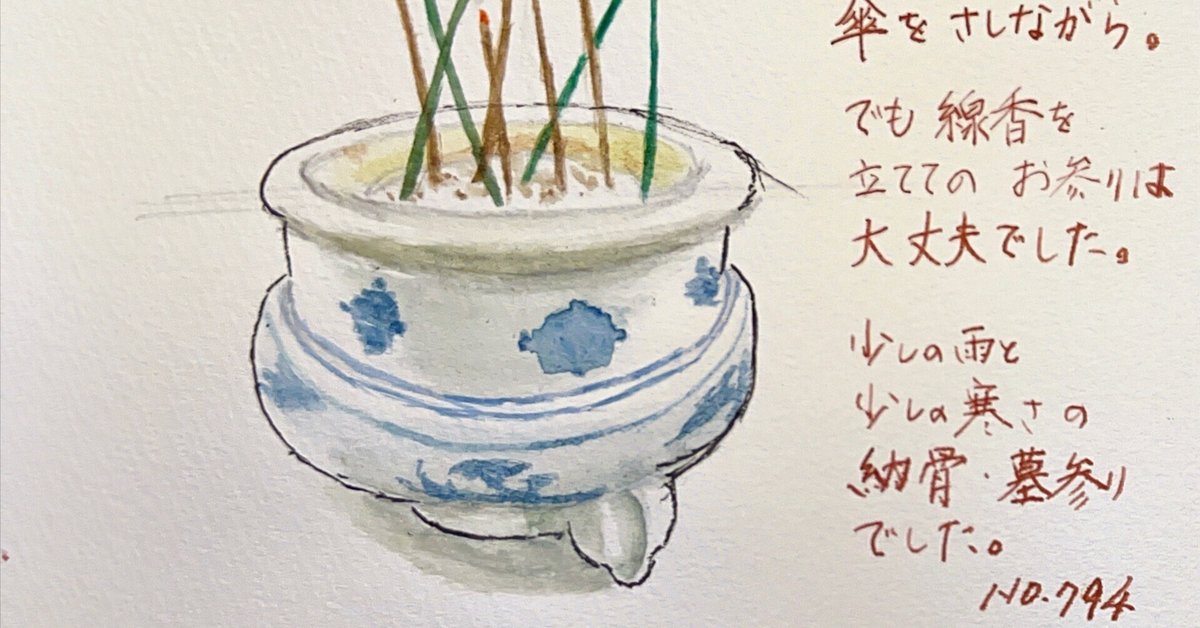 傘をさしながら。
でも線香を
立ててのお参りは
大丈夫でした。
少しの雨と
少しの寒さの
納骨・墓参り
でした。
NO.794